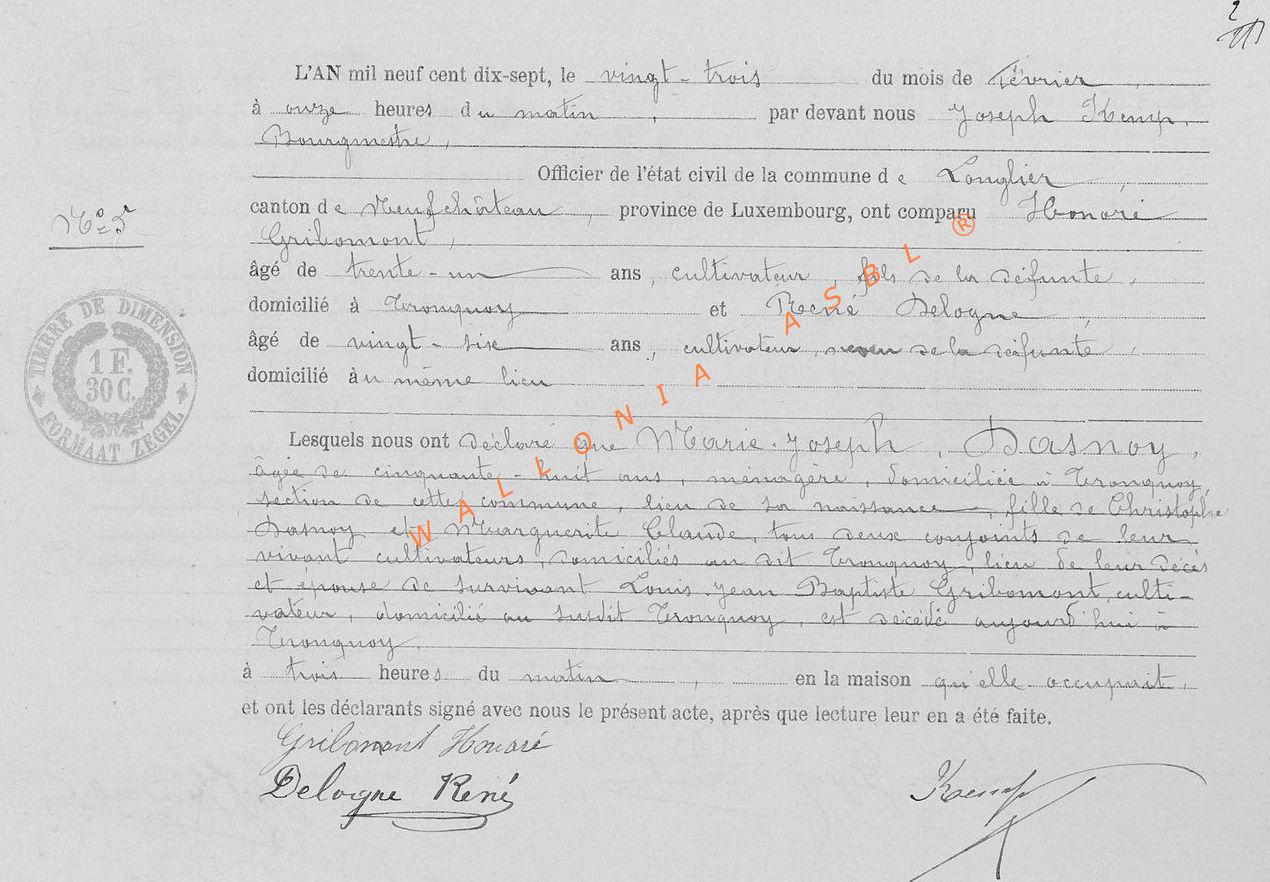 L'AN mil neuf cent dix-sept, le vingt-trois du mois de Février,
à onze heures du matin, par devant nous Joseph Kemp,
Bourgmestre,
Officier de l'état civil de la commune de Longlier,
N° 5
canton de Neufchâteau, province de Luxembourg, ont comparu Honoré
Gribomont,
âgé de trente-un ans, cultivateur, fils de la défunte,
domicilié à Tronquoy et René Delogne,
âgé de vingt-six ans, cultivateur, neveu de la défunte,
domicilié au même lieu
TIMBRE DE DIMENSION
1 F.
30 C.
FORMAAT ZEGEL
Lesquels nous ont déclaré que Marie-Joseph, Dasnoy,
âgée de cinquante-huit ans, ménagère, domiciliée à Tronquoy,
section de cette commune, lieu de sa naissance, fille de Christophe
Dasnoy et Marguerite Claude, tous deux conjoints de leur
vivant cultivateurs, domiciliés au dit Tronquoy, lieu de leur décès
et épouse de survivant Louis Jean Baptiste Gribomont, culti-
vateur, domicilié au susdit Tronquoy, est décédé aujourd'hui à
Tronquoy.
à trois heures du matin, en la maison qu'elle occupait.
et ont les déclarants signé avec nous le présent acte, après que lecture leur en a été faite.
Gribomont Honoré
Delogne René
Kemp
WALLONIA ASBL ®